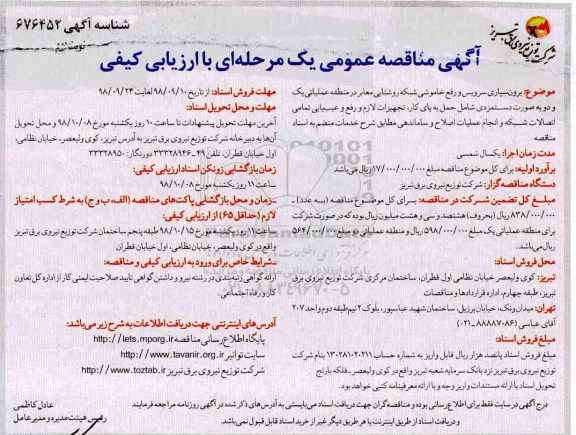 شناسه آگهی ۶۷۶۴۵۲
نوبت دوم
شرکت توزیع نیروی برق تبریز
آگهی مناقصه عمومی یک مرحله‌ای با ارزیابی کیفی
موضوع: برون‌سپاری سرویس و رفع خاموشی شبکه روشنایی معابر در منطقه عملیاتی یک
و دو به صورت دستمزدی شامل حمل به پای کار، تجهیزات لازم و رفع و عیب‌یابی تمامی
اتصالات شبکه و انجام عملیات اصلاح و ساماندهی مطابق شرح خدمات منضم به اسناد
مناقصه
مدت زمان اجرا: یکسال شمسی
برآورد اولیه: برای کل موضوع مناقصه مبلغ ۱۷/۰۰۰/۰۰۰/۰۰۰ ریال می‌باشد
دستگاه مناقصه گزار: شرکت توزیع نیروی برق تبریز
مبلغ کل تضمین شرکت در مناقصه: برای کل موضوع مناقصه (سه عدد)ـ
۸۳۸/۰۰۰/۰۰۰ ریال (بحروف) هشتصد و سی و هشت میلیون ریال بوده که در صورت شرکت
برای منطقه عملیاتی یک مبلغ ۵۹۸/۰۰۰/۰۰۰ ریال و منطقه عملیاتی دو مبلغ ۵۶۴/۰۰۰/۰۰۰
ریال می‌باشد.
محل فروش اسناد:
تبریز: کوی ولیعصر خیابان نظامی اول قطران، ساختمان مرکزی شرکت توزیع نیروی برق
تبریز، طبقه چهارم، اداره قراردادها و مناقصات
تهران: میدان ونک، خیابان برزیل، ساختمان شهید عباسپور، بلوک ۲ نیم‌طبقه دوم واحد ۲۰۷
آقای عباسی (۸۸۸۸۷۰۸۶-۰۲۱)
مبلغ فروش اسناد:
مبلغ فروش اسناد پانصد هزار ریال قابل واریز به شماره حساب ۱۳۰۲۸۱۰۲۰۲۱۱ بنام شرکت
توزیع نیروی برق تبریز نزد بانک سرمایه شعبه تبریز واقع در کوی ولیعصر ـ فلکه بارنج
تحویل اسناد با ارائه مستندات واریز وجه و با ارائه معرفینامه کتبی خواهد بود.
مهلت فروش اسناد: از تاریخ ۹۸/۰۹/۱۰ لغایت ۹۸/۰۹/۲۴
مهلت و محل تحویل اسناد:
آخرین مهلت تحویل پیشنهادات تا ساعت ۱۰ روز یکشنبه مورخ ۹۸/۱۰/۰۸ و محل تحویل
آن‌ها به دبیرخانه شرکت توزیع نیروی برق تبریز به آدرس تبریز، کوی ولیعصر، خیابان نظامی،
اول خیابان قطران، تلفن ۴۹-۳۳۳۲۸۹۴۶ دورنگار: ۳۳۳۲۸۹۵۰
زمان بازگشایی رزونکن اسناد ارزیابی کیفی:
ساعت ۱۱ روز یکشنبه مورخ ۹۸/۱۰/۰۸
ـزمان و محل بازگشایی پاکت‌های مناقصه (الف، ب و ج) به شرط کسب امتیاز
لازم (حداقل ۶۵) از ارزیابی کیفی:
روز یکشنبه مورخ ۹۸/۱۰/۱۵ طبقه پنجم ساختمان شرکت توزیع نیروی برق تبریز
واقع در کوی ولیعصر، خیابان نظامی، اول خیابان قطران
ـشرایط خاص برای ورود به ارزیابی کیفی و مناقصه:
ارائه گواهی رتبه‌بندی در رشته نیرو و داشتن گواهی تایید صلاحیت ایمنی کار از اداره کل تعاون
کار و رفاه اجتماعی.
آدرس‌های اینترنتی جهت دریافت اطلاعات به شرح زیر می‌باشد:
پایگاه اطلاع‌رسانی مناقصه http://iets.mporg.ir
سایت توانیر http://www.tavanir.org.ir
شرکت توزیع نیروی برق تبریز http://www.toztab.ir
درج آگهی در سایت فقط برای اطلاع‌رسانی بوده و مناقصه‌گران جهت دریافت اسناد می‌بایستی به آدرس‌های ذکر شده در آگهی روزنامه مراجعه فرمایند
و دریافت اسناد از طریق اینترنت یا هر طریق دیگر غیر از خرید اسناد قابل قبول نمی‌باشد.
عادل کاظمی
رئیس هیئت مدیره و مدیرعامل